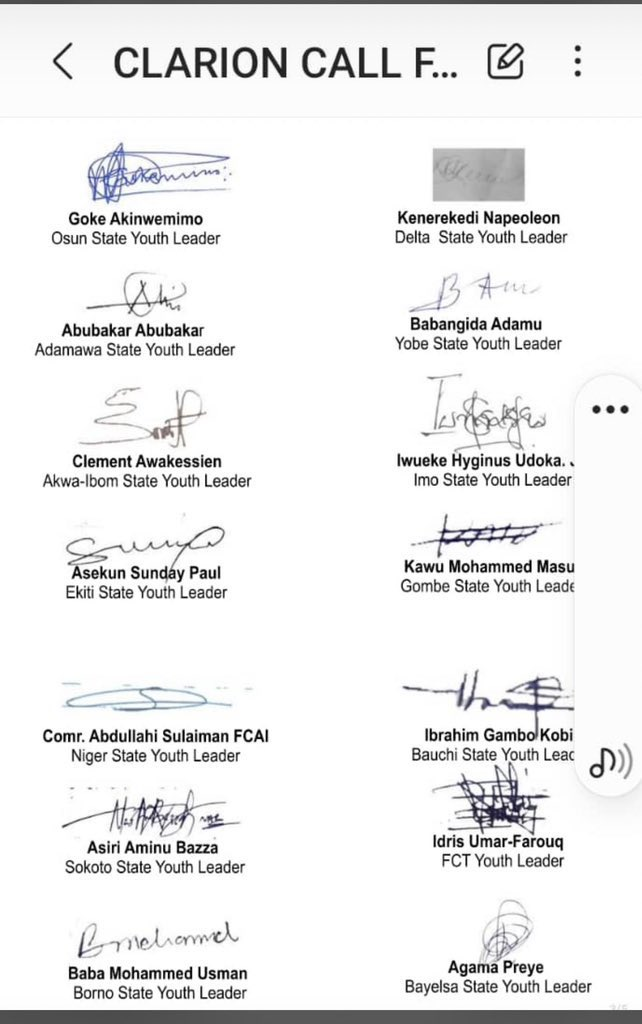 CLARION CALL F...
Goke Akinwemimo
Osun State Youth Leader
Kenerekedi Napeoleon
Delta State Youth Leader
Abubakar Abubakar
Adamawa State Youth Leader
Babangida Adamu
Yobe State Youth Leader
Clement Awakessien
Akwa-Ibom State Youth Leader
Iwueke Hyginus Udoka.
Imo State Youth Leader
Asekun Sunday Paul
Ekiti State Youth Leader
Kawu Mohammed Masu
Gombe State Youth Leade
Comr. Abdullahi Sulaiman FCAI
Niger State Youth Leader
Ibrahim Gambo Kobi
Bauchi State Youth Leac
Asiri Aminu Bazza
Sokoto State Youth Leader
Idris Umar-Farouq
FCT Youth Leader
Baba Mohammed Usman
Borno State Youth Leader
Agama Preye
Bayelsa State Youth Leader